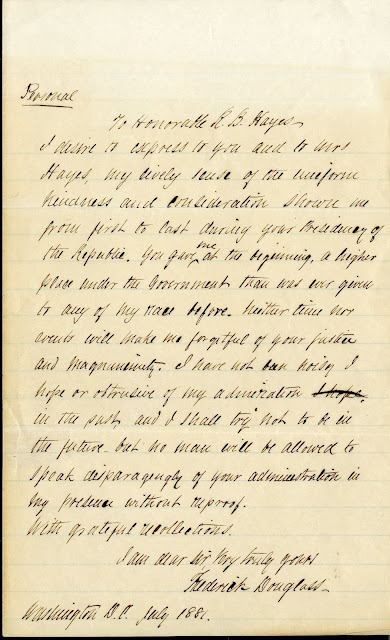 Personal
To Honorable R. B. Hayes
I desire to express to you and to Mrs
Hayes, my lively sense of the uniform
kindness and consideration shown me
from first to last during your Presidency of
the Republic. You gave me at the beginning, a higher
place under the Government than was ever given
to any of my race before. Neither time nor
events will make me forgitful of your justice
and magnanimity. I have not been noisy I
hope or obtrusive of my admiration I hope,
in the past, and I shall try not to be in
the future. but no man will be allowed to
speak disparagingly of your administration in
my presence without reproof.
With grateful recollections.
I am dear sir, Very truly yours
Frederick Douglass.
Washington D.C. July 1881.